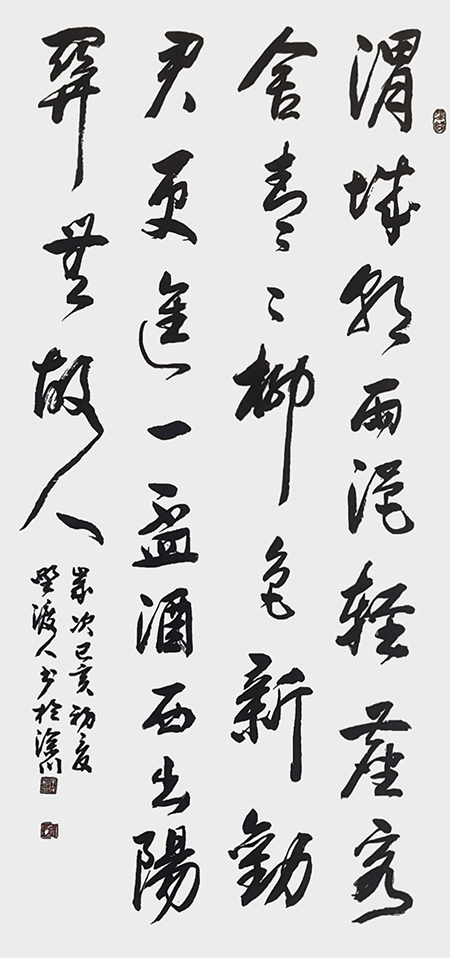 渭城朝雨浥輕塵客
舍青〻柳色新勸
君更進一盃酒西出陽
關無故人
歲次己亥初夏
野渡人書於